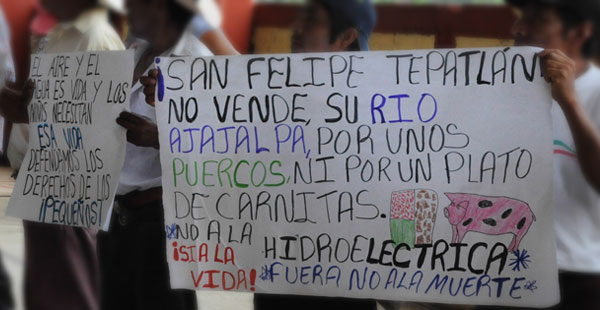 EL AIRE Y EL
AGUA ES VIDA Y LOS
NIÑOS NECESITAN
ESA VIDA
DEFENDAMOS LOS
DEPECHOS DE LOS
¡PEQUEÑOS!
¡SAN FELIPE TEPATLÁN
NO VENDE, SU RIO
AJAJALPA, POR UNOS
PUERCOS, NI POR UN PLATO
DE CARNITAS.
*NO A LA HIDROELECTRICA*
¡SI A LA VIDA!
*FUERA NO A LA MUERTE*